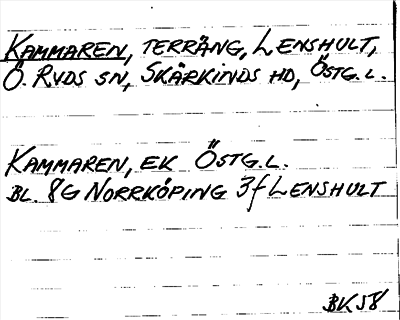 KAMMAREN, TERRÄNG, LENSHULT,
Ö. RYDS SN, SKÄRKINDS HD, ÖSTG.L.
KAMMAREN, EK ÖSTG.L.
BL. 8G NORRKÖPING 3f LENSHULT
BK58